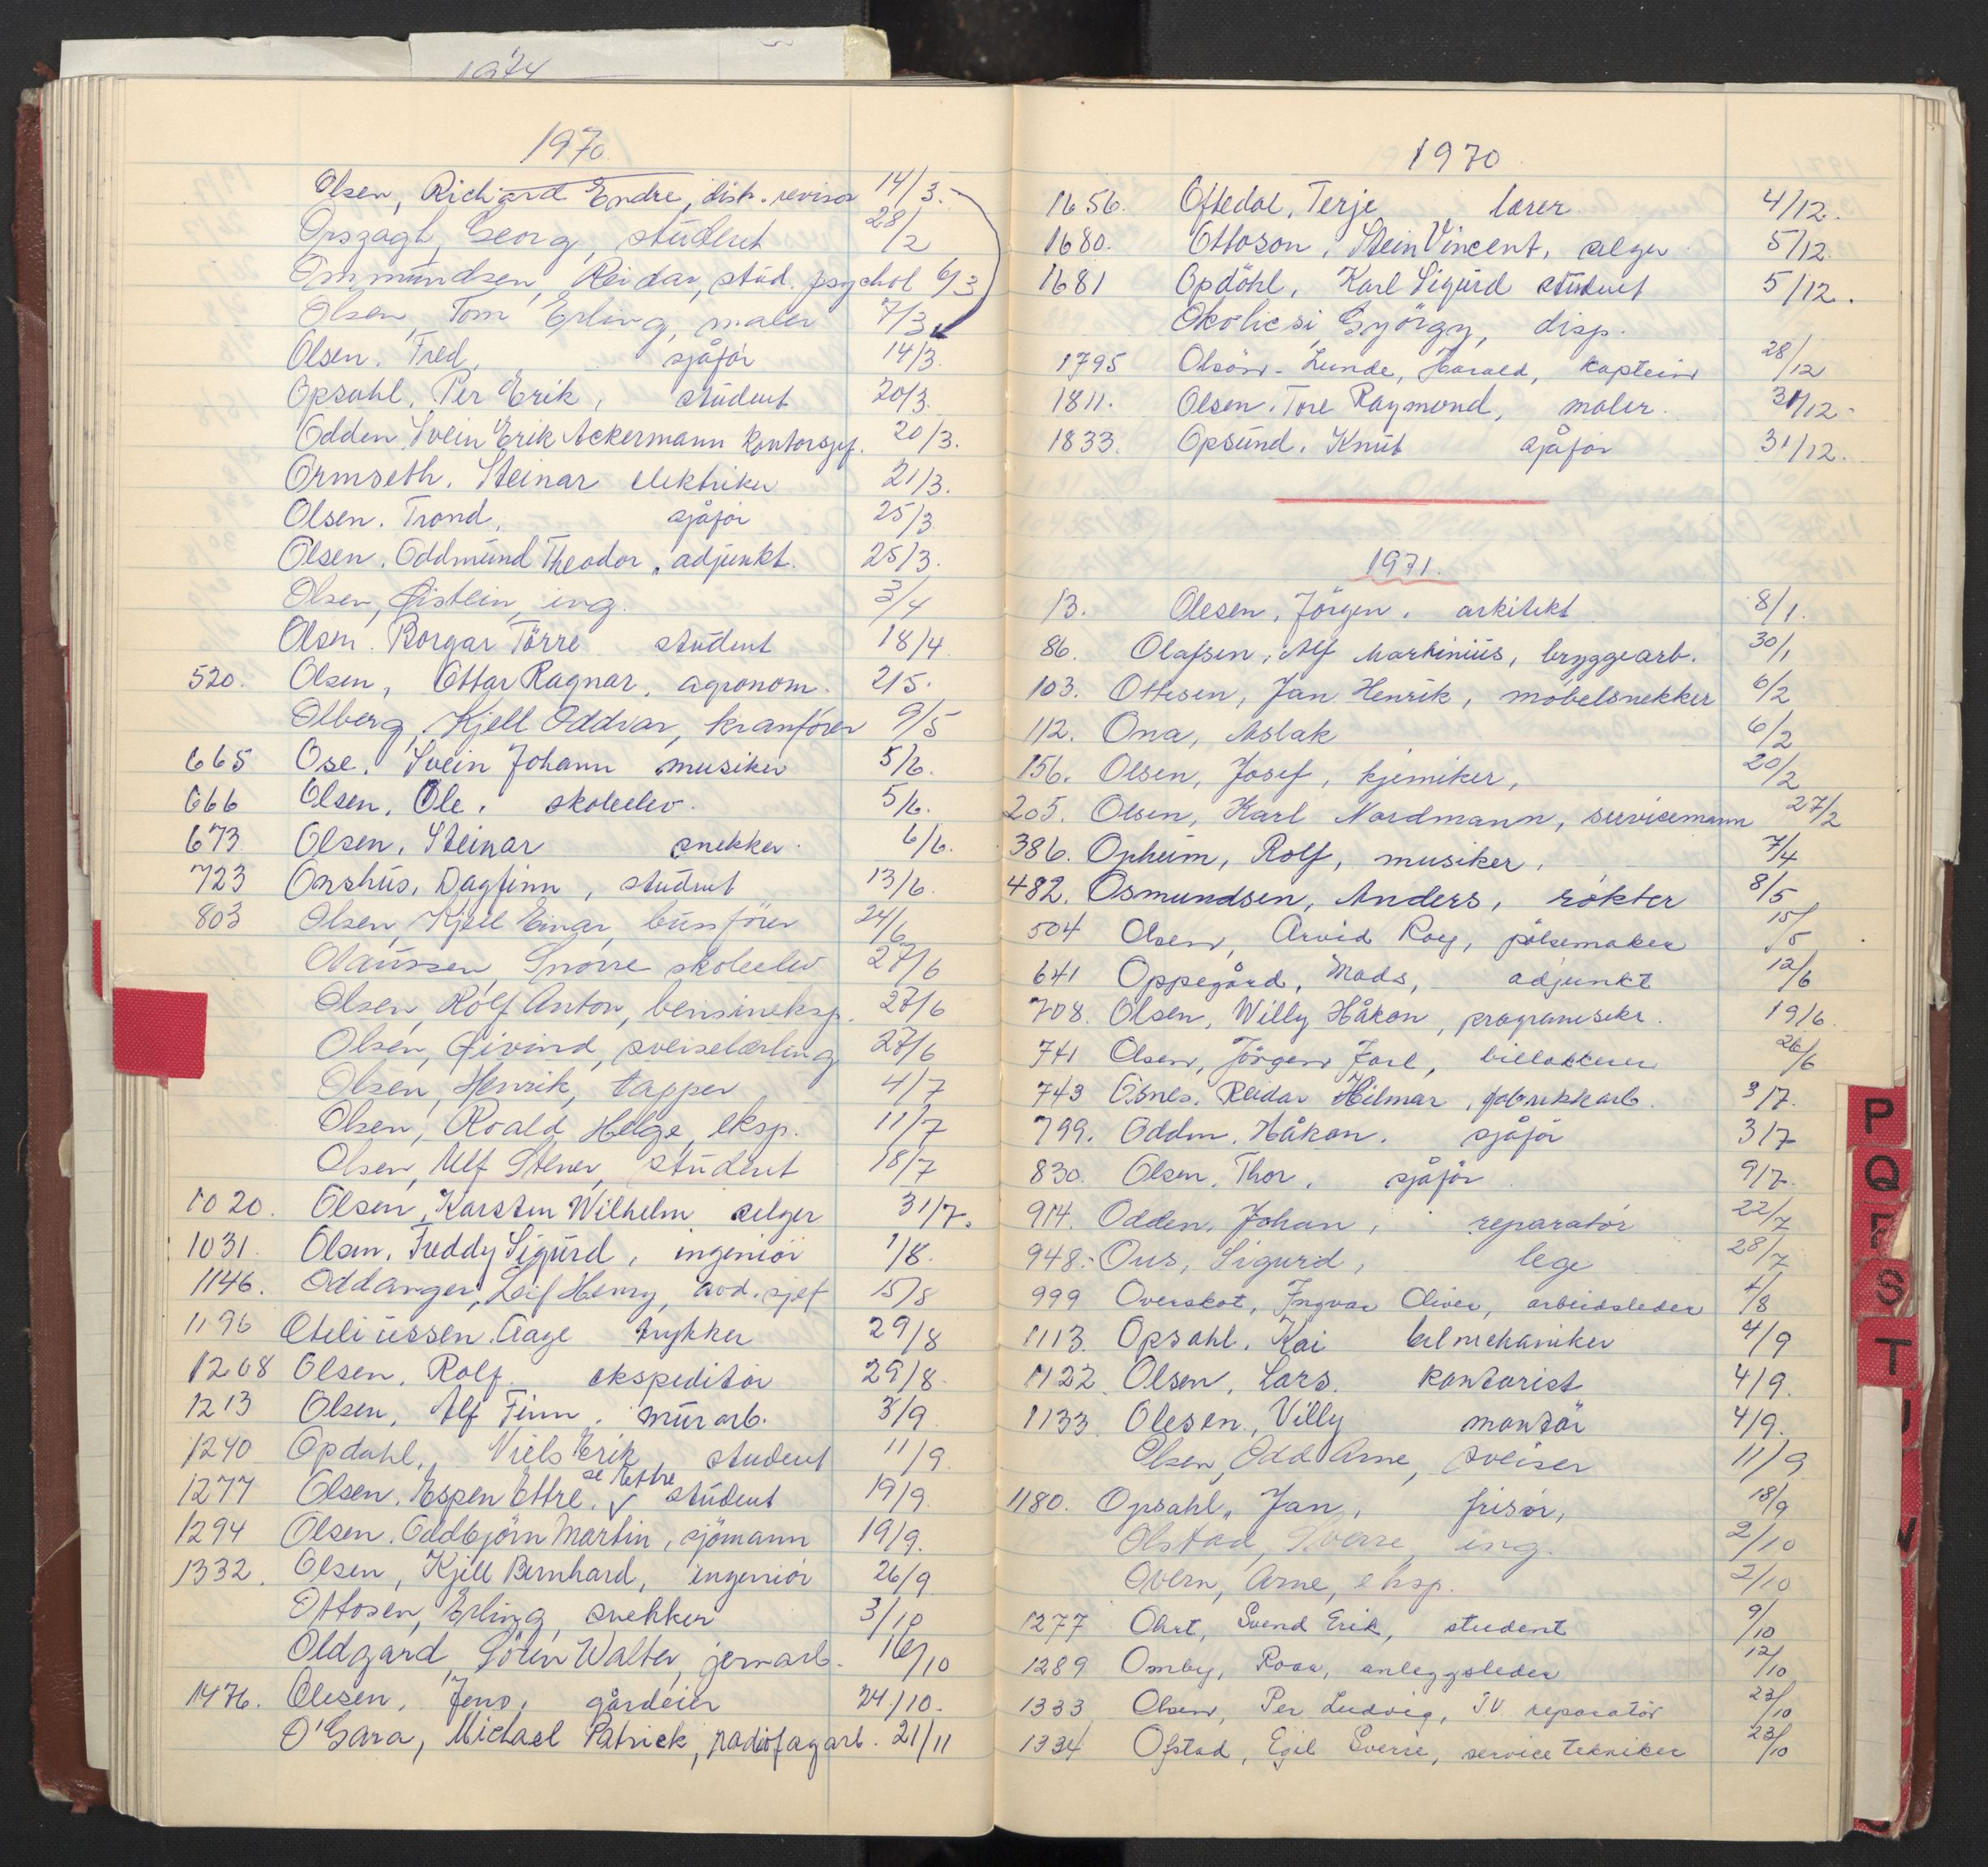 1974
1970.
Olsen, Richard Endre, distr. revisor 14/3.
Orszagh, Georg, student 28/2
Ommundsen, Reidar, stud. psychol 6/3
Olsen, Tom Erling, maler 7/3
Olsen. Fred, sjåför 14/3.
Opsahl. Per Erik, student 20/3.
Odden Svein Erik Ackermann kontorsjef. 20/3.
Ormseth. Steinar elektriker 21/3.
Olsen. Trond, sjåför 25/3
Olsen. Oddmund Theodor, adjunkt. 25/3.
Olsen, Øistein, ing. 3/4
Olsen. Borgar Törre student 18/4
520. Olsen, Ottar Ragnar, agronom. 2/5.
Olberg, Kjell Oddvar, kranförer 9/5
665 Ose. Svein Johann musiker 5/6.
666 Olsen. Ole, skoleelev. 5/6.
673 Olsen. Steinar snekker. 6/6.
723 Onshus. Dagfinn, student 13/6.
803 Olsen, Kjell Einar, bussförer 24/6
Olaussen, Snorre skoleelev 27/6
Olsen, Rolf Anton, bensineksp. 27/6
Olsen, Øivind, sveiselærling 27/6
Olsen, Henrik, tapper 4/7
Olsen, Roald Helge, eksp. 11/7
Olsen, Ulf Stener, student 18/7
1020. Olsen, Karsten Wilhelm selger 31/7.
1031. Olsen. Freddy Sigurd, ingeniör 1/8.
1146. Oddanger, Leif Henry, avd. sjef 15/8
1196 Oteliussen. Aage trykker 29/8
1208 Olsen. Rolf. ekspeditör 29/8.
1213 Olsen. Alf Finn. murarb. 3/9
1240 Opdahl, Niels Erik, student 11/9
se Ettre
1277 Olsen. Espen Ettre. ✓ student 19/9.
1294 Olsen. Oddbjörn Martin, sjömann 19/9.
1332. Olsen, Kjell Bernhard, ingeniör 26/9
Ottosen, Erling, snekker 3/10
Oldgard, Sören Walter, jernarb. 16/10
1476. Olesen, Jens, gårdeier 24/10.
O'Gara, Michael Patrick, radiofagarb. 21/11
1970
1656. Oftedal, Terje lærer 4/12.
1680. Ottoson, Stein Vincent, selger 5/12.
1681 Opdöhl, Karl Sigurd student 5/12.
Okolicsi, György, disp.
1795 Olsön-Lunde, Harald, kaptein 28/12
1811. Olsen. Tore Raymond, maler. 31/12.
1833. Opsund. Knut sjåför 31/12.
1971.
13. Olesen. Jörgen. arkitekt 8/1.
86. Olafsen, Alf Martinius, bryggearb. 30/1
103. Ottesen, Jan Henrik, möbelsnekker 6/2
112. Ona, Aslak 6/2
156. Olsen, Josef, kjemiker, 20/2
205. Olsen, Karl Nordmann, servicemann 27/2
386. Opheim, Rolf, musiker, 7/4
482. Osmundsen, Anders, rökter 8/5
504 Olsen, Arvid Roy, pölsemaker 15/5
641 Oppegård, Mads, adjunkt 12/6
708. Olsen, Willy Håkon, programsekr. 19/6.
741 Olsen, Jörgen Jarl, billakkerer 26/6
743 Osnes. Reidar Hilmar, fabrikkarb. 3/7.
799. Odden. Håkon. sjåför 3/7
830. Olsen. Thor. sjåför 9/7.
914. Odden, Johan, reparatör 22/7
948. Ous, Sigurd, lege 28/7
999 Overskot, Ingvar Oliver, arbeidsleder 7/8
1113. Opsahl. Kai bilmekaniker 4/9
1122 Olsen, Lars. kontorist 4/9.
1133 Olesen, Villy montör 4/9.
Olsen, Odd Arne, sveiser 11/9
1180. Opsahl, Jan, frisör, 18/9
Olstad, Sverre, ing. 2/10
Overn, Arne, eksp. 2/10
1277 Ohrt, Svend Erik, student 9/10
1289 Omby, Roar, anleggsleder 12/10
1333 Olsen, Per Ludvig, TV reparatör 23/10
1334 Ofstad, Egil Sverre, service tekniker 23/10
P
Q
R
S
T
U
V